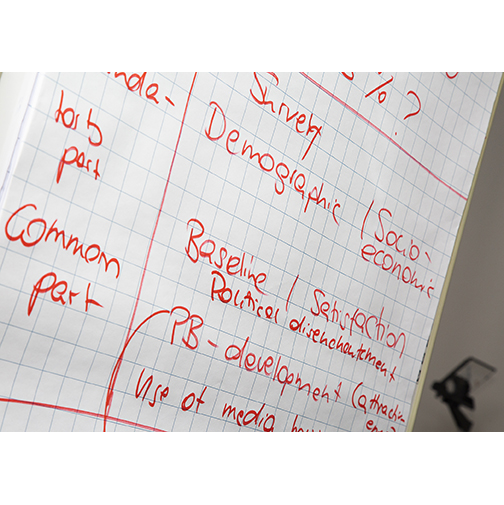 nda-
tory
part
Common
part
%?
Survey
Demographic / Socio-
economic
Baseline / Satisfaction
Political disenchantement
PB-development (attraction
Use of media